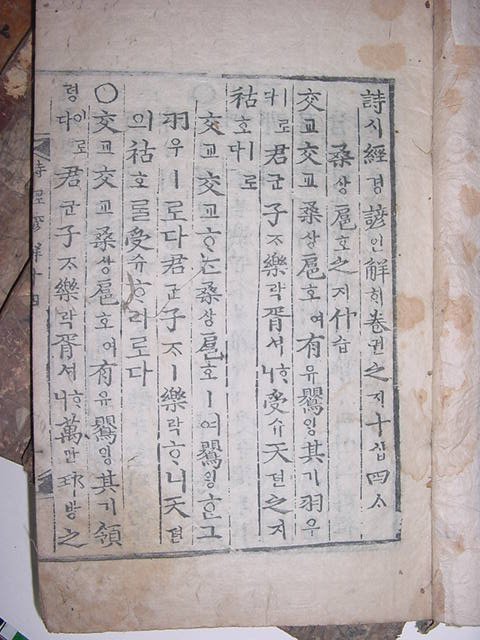 詩시經경諺언解ᄒᆡ卷권之지十십四ᄉᆞ
桑상扈호之지什습
交교交교桑상扈호여有유鸎ᅌᅵᆼ其기羽우
ㅣ로다君군子ᄌᆞ樂락胥셔ᄒᆞ니受슈天텬之지
祜호ㅣ로다
交교交교ᄒᆞᄂᆞᆫ桑상扈호ㅣ여鸎ᅌᅵᆼᄒᆞᆫ그
羽우ㅣ로다君군子ᄌᆞㅣ樂락ᄒᆞ니天텬
의祜호를受슈ᄒᆞ리로다
○交교交교桑상扈호여有유鸎ᅌᅵᆼ其기領
령이로다君군子ᄌᆞ樂락胥셔ᄒᆞ니萬만邦방之
詩經諺解十四